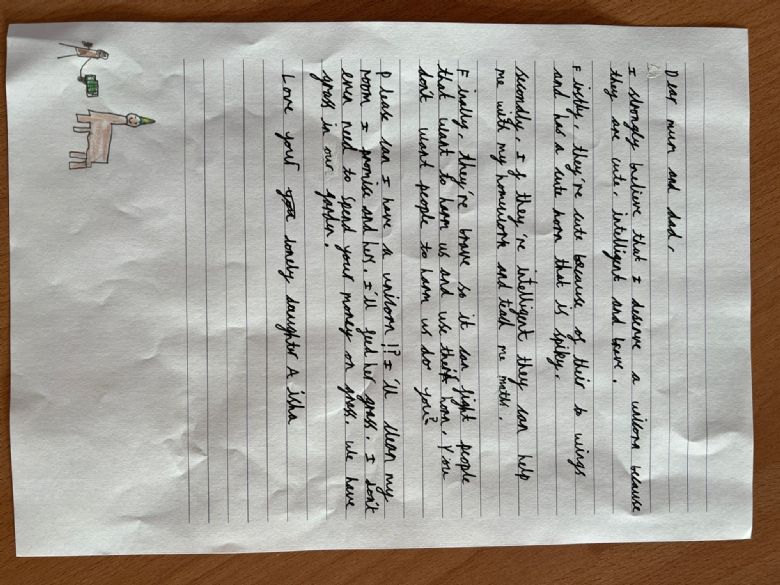 Dear mum and dad,
I strongly believe that I deserve a unicorn because
they are cute, intelligent and brave.
Firstly, they're cute because of their b wings
and has a cute horn that is spiky.
secondly, If they're intelligent they can help
me with my homework and teach me maths.
Finally, they're brave so it can fight people
that want to harm us and use their horn. You
dont want people to harm us do you?
Please can I have a unicorn!? I'll clean my
room I promise and hers. I'll feed her grass. I don't
even need to spend your money on grass. We have
grass in our garden.
Love your lonely daughter Aisha